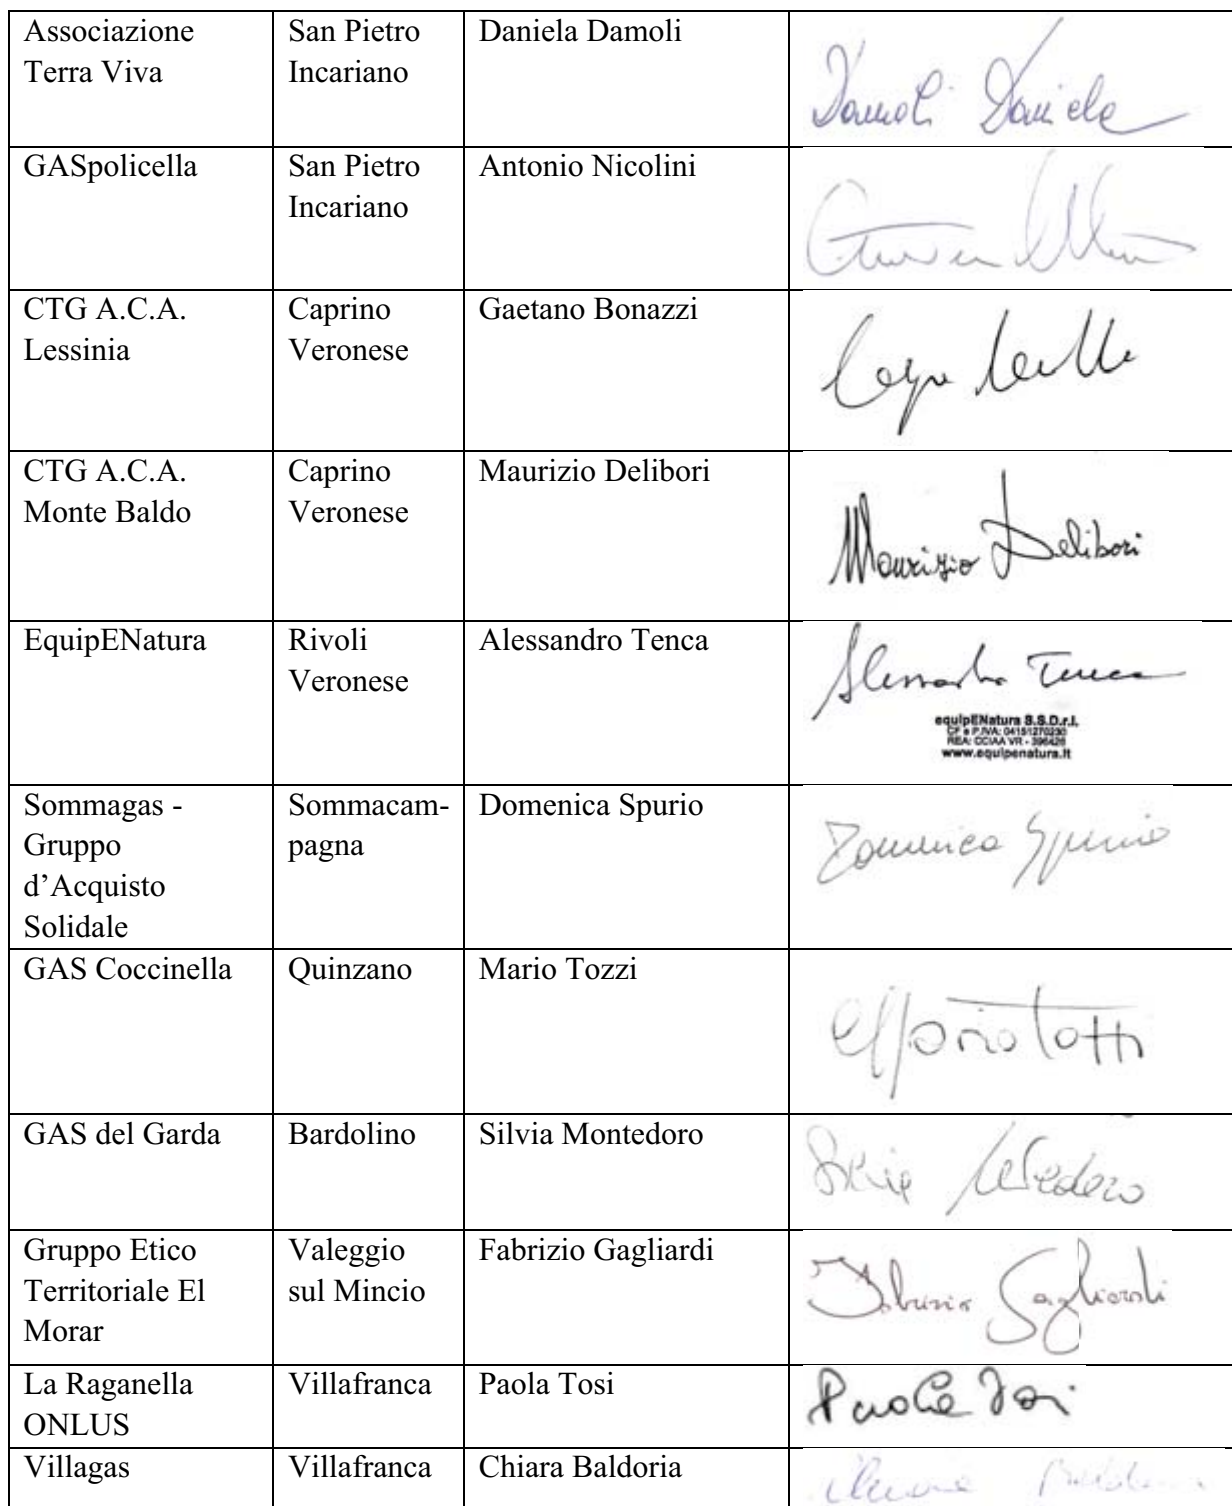 Associazione Terra Viva
San Pietro Incariano
Daniela Damoli
Damoli Daniela
GASpolicella
San Pietro Incariano
Antonio Nicolini
CTG A.C.A. Lessinia
Caprino Veronese
Gaetano Bonazzi
CTG A.C.A. Monte Baldo
Caprino Veronese
Maurizio Delibori
Maurizio Delibori
EquipENatura
Rivoli Veronese
Alessandro Tenca
Alessandro Tenca
equipENatura S.S.D.r.l.
CF e P.IVA: 04151270230
REA: CCIAA VR - 396426
www.equipenatura.it
Sommagas - Gruppo d’Acquisto Solidale
Sommacam-pagna
Domenica Spurio
Domenica Spurio
GAS Coccinella
Quinzano
Mario Tozzi
GAS del Garda
Bardolino
Silvia Montedoro
Gruppo Etico Territoriale El Morar
Valeggio sul Mincio
Fabrizio Gagliardi
Fabrizio Gagliardi
La Raganella ONLUS
Villafranca
Paola Tosi
Paola Tosi
Villagas
Villafranca
Chiara Baldoria